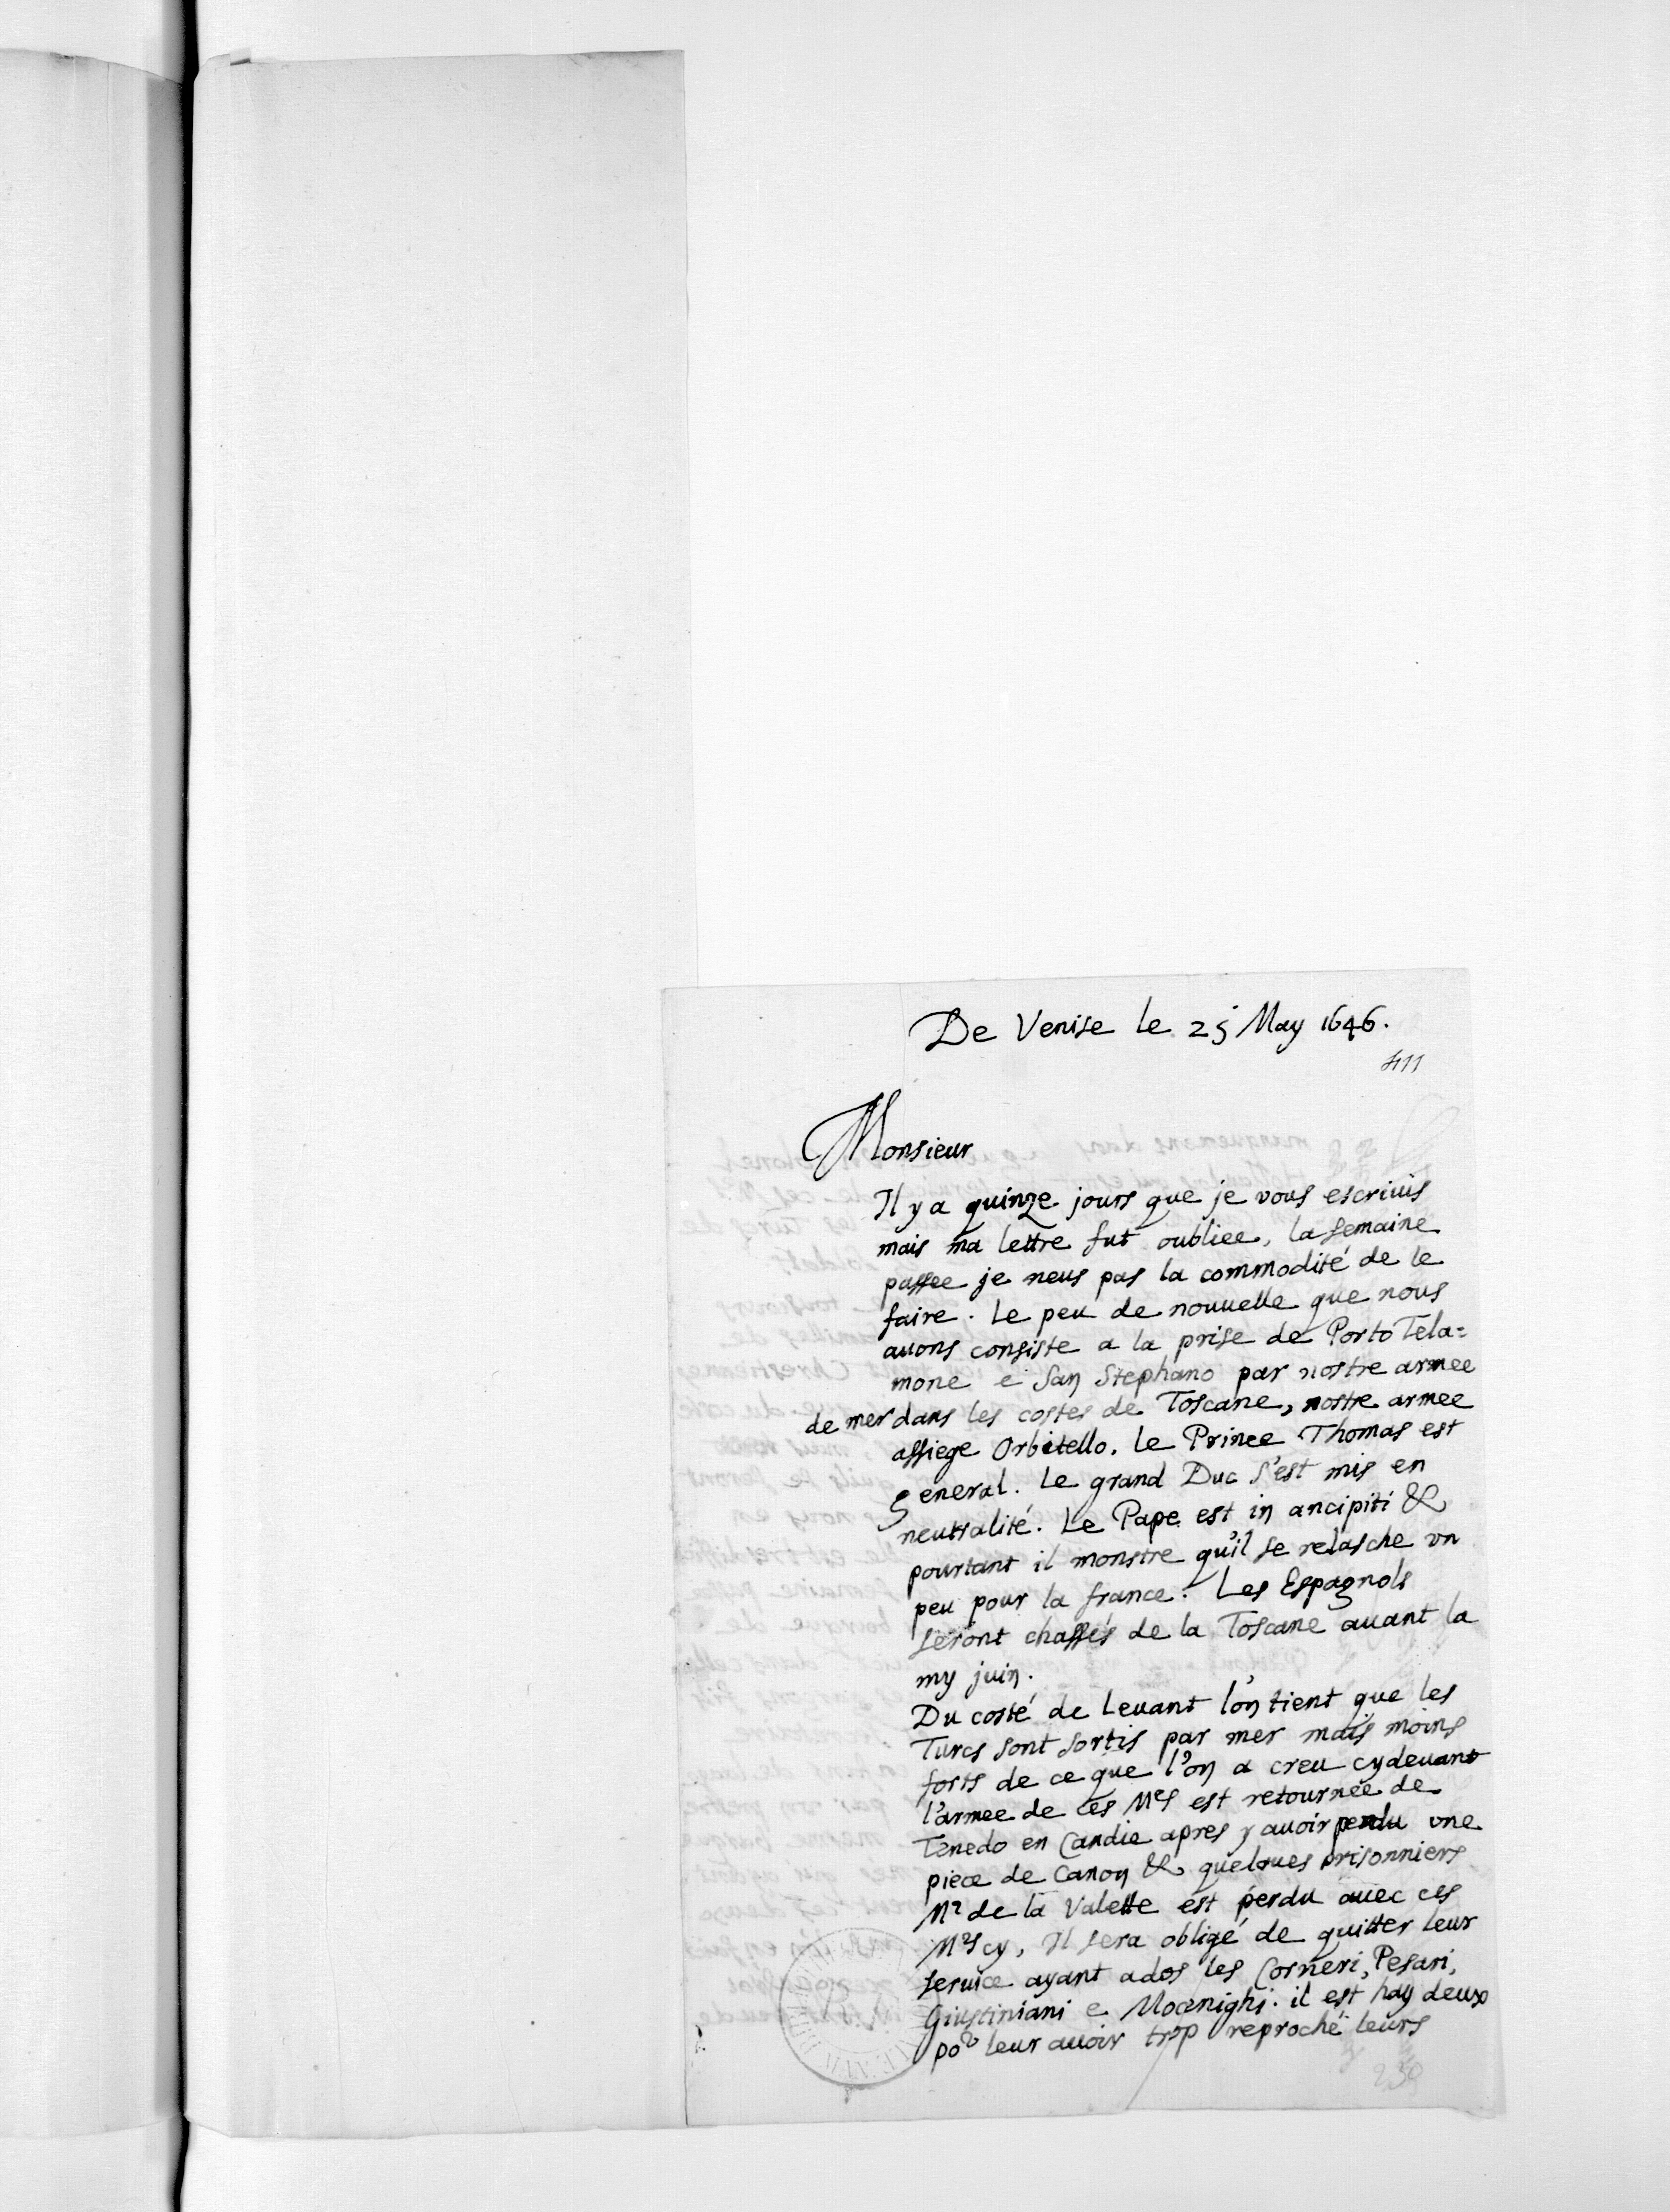 De Venise le 25 May 1646.
411
Monsieur
Il y a quinze jours que je vous escriuis
mais ma lettre fut oubliee, la semaine
passee je neus pas la commodité de le
faire. Le peu de nouuelle que nous
auons consiste a la prise de Porto Tela=
mone e San Stephano par nostre armee
de mer dans les costes de Toscane, nostre armee
assiege Orbitello. Le Prince Thomas est
general. Le grand Duc s'est mis en
neutralité. Le Pape est in ancipiti &
pourtant il monstre qu'il se relasche vn
peu pour la france. Les Espagnols
seront chassés de la Toscane auant la
my juin.
Du costé de Leuant l'on tient que les
Turcs sont sortis par mer mais moins
forts de ce que l'on a creu cydeuant
l'armee de ces Mrs est retournée de
Tenedo en Candie apres y auoir perdu vne
piece de Canon & quelques prisonniers
Mr de la Valette est perdu auec ces
Mrs cy, Il sera obligé de quitter leur
seruice ayant ados les Corneri, Pesari,
Giustiniani e Mocenighi. il est hay deux
por leur auoir trop reproché leurs
230